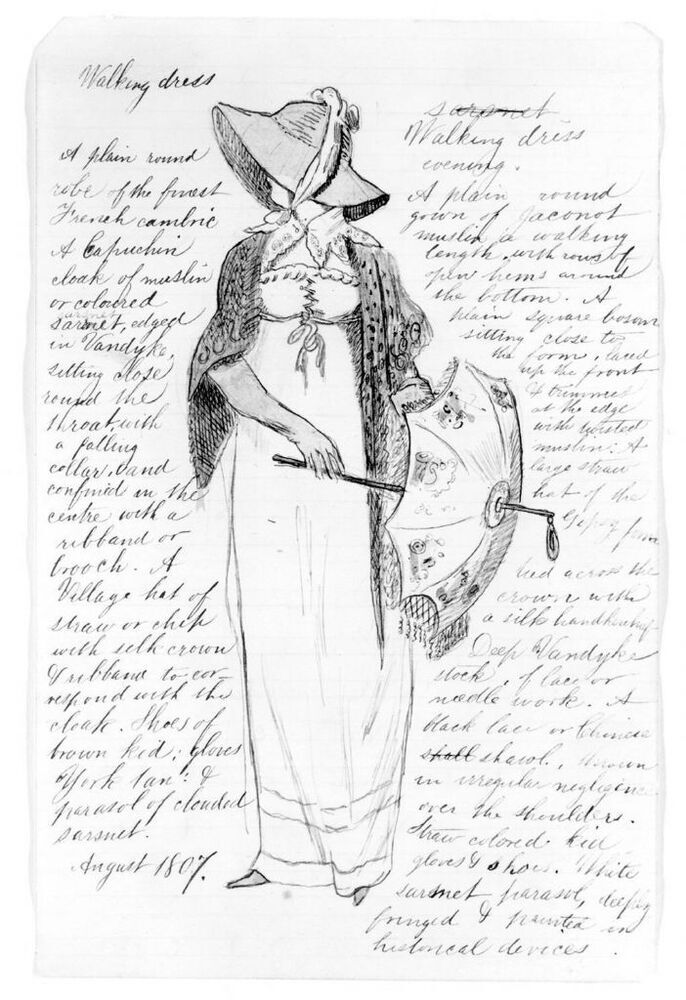 Walking dress
A plain round
robe of the finest
French cambric
A Capuchin
cloak of muslin
or coloured
sarsnet, edged
in Vandyke,
sitting close
round the
throat, with
a falling
collar, and
confined in the
centre with a
ribband or
brooch. A
Village hat of
straw or chip
with silk crown
& ribband to cor-
respond with the
cloak. Shoes of
brown kid; gloves
York tan: &
parasol of clouded
sarsnet.
August 1807.
sarsnet
Walking dress
evening.
A plain round
gown of jaconot
muslin, a walking
length, with rows of
open hems around
the bottom. A
plain square bosom
sitting close to
the form, laced
up the front
& trimmed
at the edge
with twisted
muslin: A
large straw
hat of the
Gipsy form
tied across the
crown with
a silk handkerchief
Deep Vandyke
stock, of lace or
needle work. A
black lace or Chinese
shall shawl, thrown
in irregular negligence
over the shoulders.
Straw colored kid
gloves & shoes. White
sarsnet parasol, deeply
fringed & painted in
historical devices.